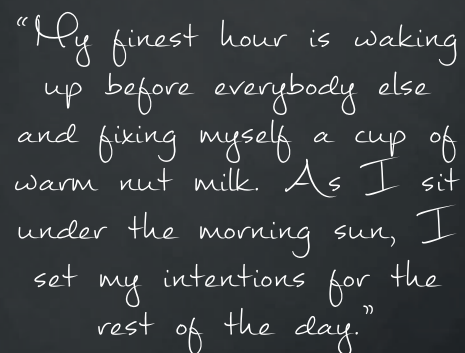 “My finest hour is waking
up before everybody else
and fixing myself a cup of
warm nut milk. As I sit
under the morning sun, I
set my intentions for the
rest of the day.”